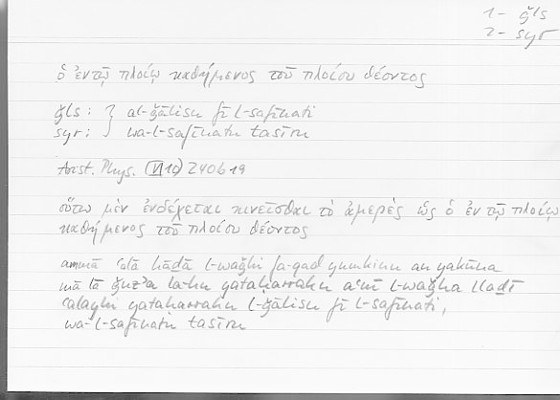 1 - ǧls
2 - syr
ὁ ἐν τῷ πλοίῳ καθήμενος τοῦ πλοίου θέοντος
ǧls : } al-ǧālisu fī l-safīnati
syr : } wa-l-safīnatu tasīru
Arist. Phys. VI 10 240b19
οὕτω μὲν ἐνδέχεται κινεῖσθαι τὸ ἀμερές ὡς ὁ ἐν τῷ πλοίῳ
καθήμενος τοῦ πλοίου θέοντος
ammā ʿalā hāḏā l-waǧhi fa-qad yumkinu an yakūna
mā lā ǧuzʾa la-hu yataḥarraku aʿnī l-waǧha llaḏī
ʿalayhi yataḥarraku l-ǧālisu fī l-safīnati,
wa-l-safīnatu tasīru